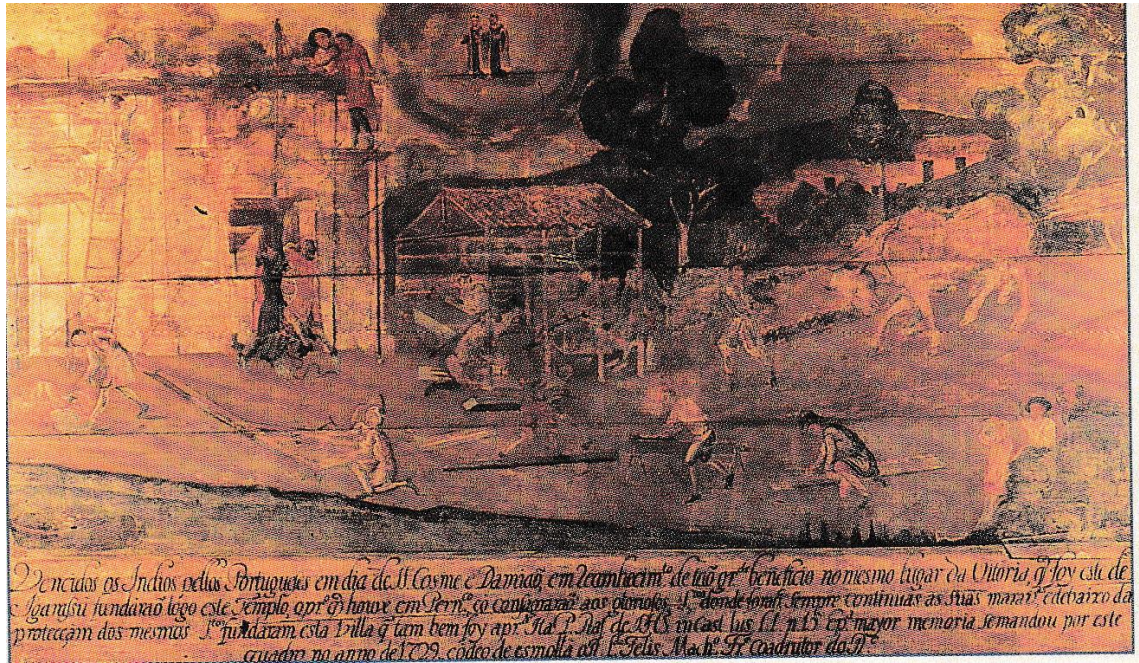 Vencidos os Indios pellos Portugueus em dia de SS Cosme e Damiaõ, em Reconhecim.to de taõ gr.de beneficio no mesmo lugar da Vitoria, q̃ foy este de
Igarassu fundaraõ logo este Templo, o pr.o q̃ houve em Pern.co consagraraõ aos gloriosos S.tos donde foraõ sempre continuas as suas marav.as e debaixo da
protecçam dos mesmos S.tos fundaram esta Villa q̃ tam bem foy a pr.a
mayor memoria se mandou por este
quadro no anno de 1729. e o deo de esmolla o Felis Mach.o Fr.e Coadrutor do